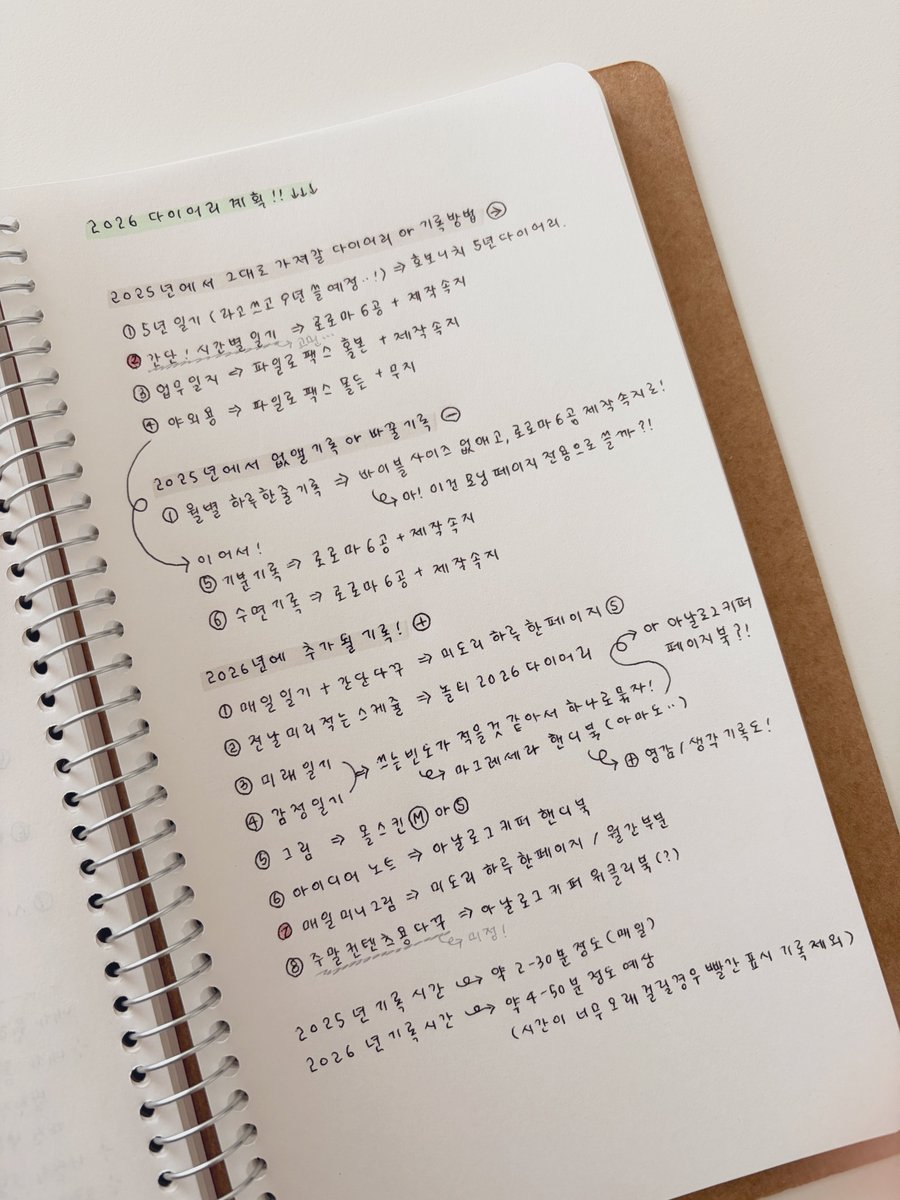 2026 다이어리 계획!! ↓↓↓
2025년에서 그대로 가져갈 다이어리 or 기록방법 →
① 5년 일기 (라고 쓰고 9년 쓸 예정..!) ⇒ 호보니치 5년 다이어리.
② 간단! 시간별 일기 ⇒ 로로마 6공 + 제작속지
↪ 고민...
③ 업무일지 ⇒ 파일로팩스 홀본 + 제작속지
④ 야외용 ⇒ 파일로팩스 몰든 + 무지
2025년에서 없앨기록 or 바꿀기록 ⊖
① 월별 하루한줄기록 ⇒ 바이블 사이즈 없애고, 로로마 6공 제작속지로!
↪ 아! 이건 모닝페이지 전용으로 쓸까?!
이어서!
⑤ 기분기록 ⇒ 로로마 6공 + 제작속지
⑥ 수면기록 ⇒ 로로마 6공 + 제작속지
2026년에 추가될 기록! ⊕
① 매일 일기 + 간단다꾸 ⇒ 미도리 하루 한페이지 Ⓢ
② 전날 미리적는 스케쥴 ⇒ 놀티 2026 다이어리
③ 미래 일기
④ 감정일기
⇒ 쓰는빈도가 적을것 같아서 하나로묶자!
→ or 아날로그키퍼
페이지북?!
↪ 마그레세라 핸디북 (아마도..)
↪ ⊕ 영감/생각 기록도!
⑤ 그림 ⇒ 몰스킨 Ⓜ or Ⓢ
⑥ 아이디어 노트 ⇒ 아날로그키퍼 핸디북
⑦ 매일 미니그림 ⇒ 미도리 하루 한페이지 / 월간부분
⑧ 주말 컨텐츠용 다꾸 ⇒ 아날로그키퍼 위클리북(?)
↪ 미정!
2025년 기록 시간 ↪ 약 2-30분 정도 (매일)
2026년 기록시간 ↪ 약 4-50분 정도 예상
(시간이 너무 오래 걸릴경우 빨간 표시 기록 제외)